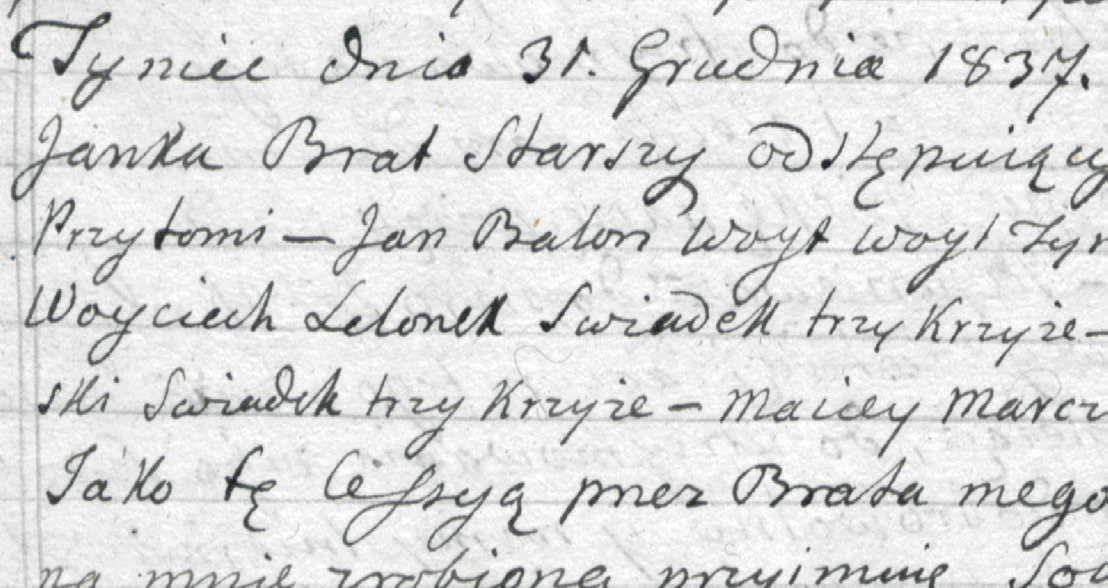 Tyniec dnia 31. Grudnia 1837.
Janka Brat Starszy odstępuiący
Przytomi — Jan Balon Woyt woyt Tyn
Woyciech Lelonek Swiadek trzy Krzyże —
ski Swiadek trzy Krzyże — Maciey Marcz
Jako tę Cessyą przez Brata mego
na mnie zrobioną przyimuię